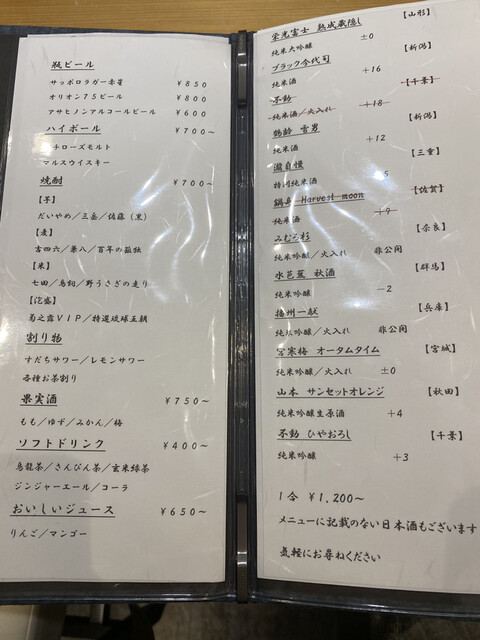 瓶ビール
サッポロラガー赤星 ￥850
オリオン75ビール ￥800
アサヒノンアルコールビール ￥600
ハイボール ￥700～
イチローズモルト
マルスウイスキー
焼酎 ￥700～
【芋】
だいやめ／三岳／佐藤（黒）
【麦】
吉四六／兼八／百年の孤独
【米】
七田／鳥飼／野うさぎの走り
【泡盛】
菊之露VIP／特選琉球王朝
割り物
すだちサワー／レモンサワー
各種お茶割り
果実酒 ￥750～
もも／ゆず／みかん／梅
ソフトドリンク ￥400～
烏龍茶／さんぴん茶／玄米緑茶
ジンジャーエール／コーラ
おいしいジュース ￥650～
りんご／マンゴー
栄光冨士 熟成蔵隠し 【山形】
純米大吟醸 ±0
ブラック今代司 【新潟】
純米酒 +16
不動 【千葉】
純米酒／火入れ +18
鶴齢 雪男 【新潟】
純米酒 +12
瀧自慢 【三重】
特別純米酒 5
鍋島 Harvest moon 【佐賀】
純米酒 +9
みむろ杉 【奈良】
純米吟醸／火入れ 非公開
水芭蕉 秋酒 【群馬】
純米吟醸 -2
播州一献 【兵庫】
純米吟醸／火入れ 非公開
宮寒梅 オータムタイム 【宮城】
純米吟醸／火入れ ±0
山本 サンセットオレンジ 【秋田】
純米吟醸生原酒 +4
不動 ひやおろし 【千葉】
純米吟醸 +3
1合 ￥1,200～
メニューに記載のない日本酒もございます
気軽にお尋ねください